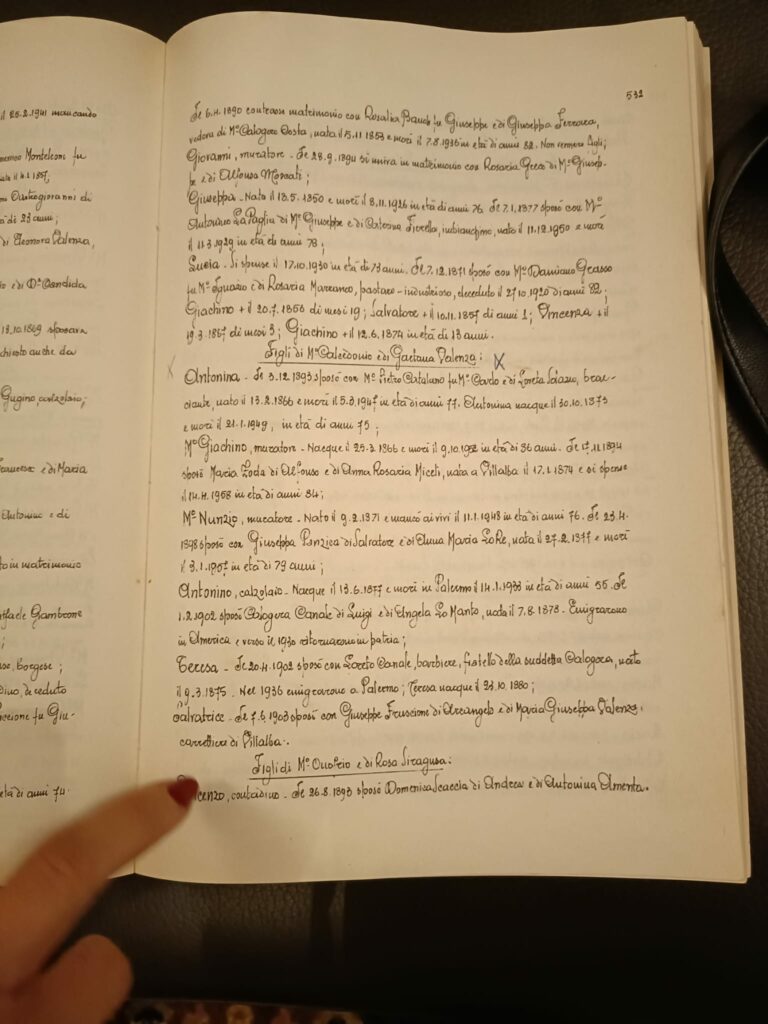 il 25.2.1941 mancando
Monteleone fu
il 4.1.1857,
Castrogiovanni di
tà di 23 anni;
di Eleonora Valenza,
io e di Dª Candida
13.10.1869 sposava
chiesto anche da
Gugino, calzolaio;
Francesco e di Maria
Antonino e di
to in matrimonio
Raffaele Gambrone
se, borgese;
dino, deceduto
Piccione fu Giu-
età di anni 74.
532
Je 6.4.1890 contrasse matrimonio con Rosalina fu Giuseppe e di Giuseppa Ferrara,
vedova di Mº Calogero Costa, nata il 15.11.1853 e morì il 7.8.1935 in età di anni 82. Non vennero figli;
Giovanni, muratore - Je 28.9.1894 si univa in matrimonio con Rosaria Greco di Mº Giusep-
pe e di Alfonsa Mossati;
Giuseppa - Nata il 13.5.1850 e morì il 8.11.1926 in età di anni 76. Je 7.1.1877 sposò con Mº
Antonino La Paglia di Mº Giuseppe e di Caterina Fiorella, imbianchino, nato il 11.12.1950 e morì
il 11.3.1929 in età di anni 78;
Lucia - Si spense il 17.10.1930 in età di 73 anni. Je 7.12.1871 sposò con Mº Damiano Grasso
fu Mº Ignazio e di Rosaria Marranco, pastaro - industrioso, deceduto il 27.10.1920 di anni 82;
Giachino + il 20.7.1856 di mesi 19; Salvatore + il 10.11.1857 di anni 2; Vincenza + il
19.3.1867 di mesi 3; Giachino + il 12.6.1874 in età di 13 anni.
Figli di Mº Calcedonio e di Gaetana Valenza: X
Antonina - Je 3.12.1893 sposò con Mº Pietro Catalano fu Mº Cardo e di Loreta Saiano, brac-
ciante, nato il 13.2.1866 e morì il 5.3.1947 in età di anni 77. Antonina nacque il 30.10.1873
e morì il 21.1.1949, in età di anni 75;
Mº Giachino, muratore - Nacque il 25.2.1866 e morì il 9.10.1952 in età di 86 anni. Je 17.11.1894
sposò Maria Zoda di Alfonso e di Anna Rosaria Miceli, nata a Villalba il 17.1.1874 e si spense
il 14.4.1958 in età di anni 84;
Mº Nunzio, muratore - Nato il 9.2.1871 e mancò ai vivi il 11.1.1948 in età di anni 76. Je 23.4.
1898 sposò con Giuseppa Panzica di Salvatore e di Anna Maria Lo Re, nata il 27.2.1877 e morì
il 3.1.1957 in età di 79 anni;
Antonino, calzolaio - Nacque il 13.6.1877 e morì in Palermo il 14.1.1933 in età di anni 55. Je
1.2.1902 sposò Calogera Canale di Luigi e di Angela Lo Manto, nata il 7.8.1878. Emigrarono
in America e verso il 1930 ritornarono in patria;
Teresa - Je 20.4.1902 sposò con Loreto Canale, barbiere, fratello della suddetta Calogera, nato
il 9.3.1875. Nel 1936 emigrarono a Palermo; Teresa nacque il 23.10.1880;
Salvatrice - Je 7.6.1903 sposò con Giuseppe Fruscione di Arcangelo e di Maria Giuseppa Valenza,
carrettiere di Villalba.
Figli di Mº Onofrio e di Rosa Siragusa:
Vincenzo, contadino - Je 26.8.1893 sposò Domenica Scaccia di Andrea e di Antonina Amenta.